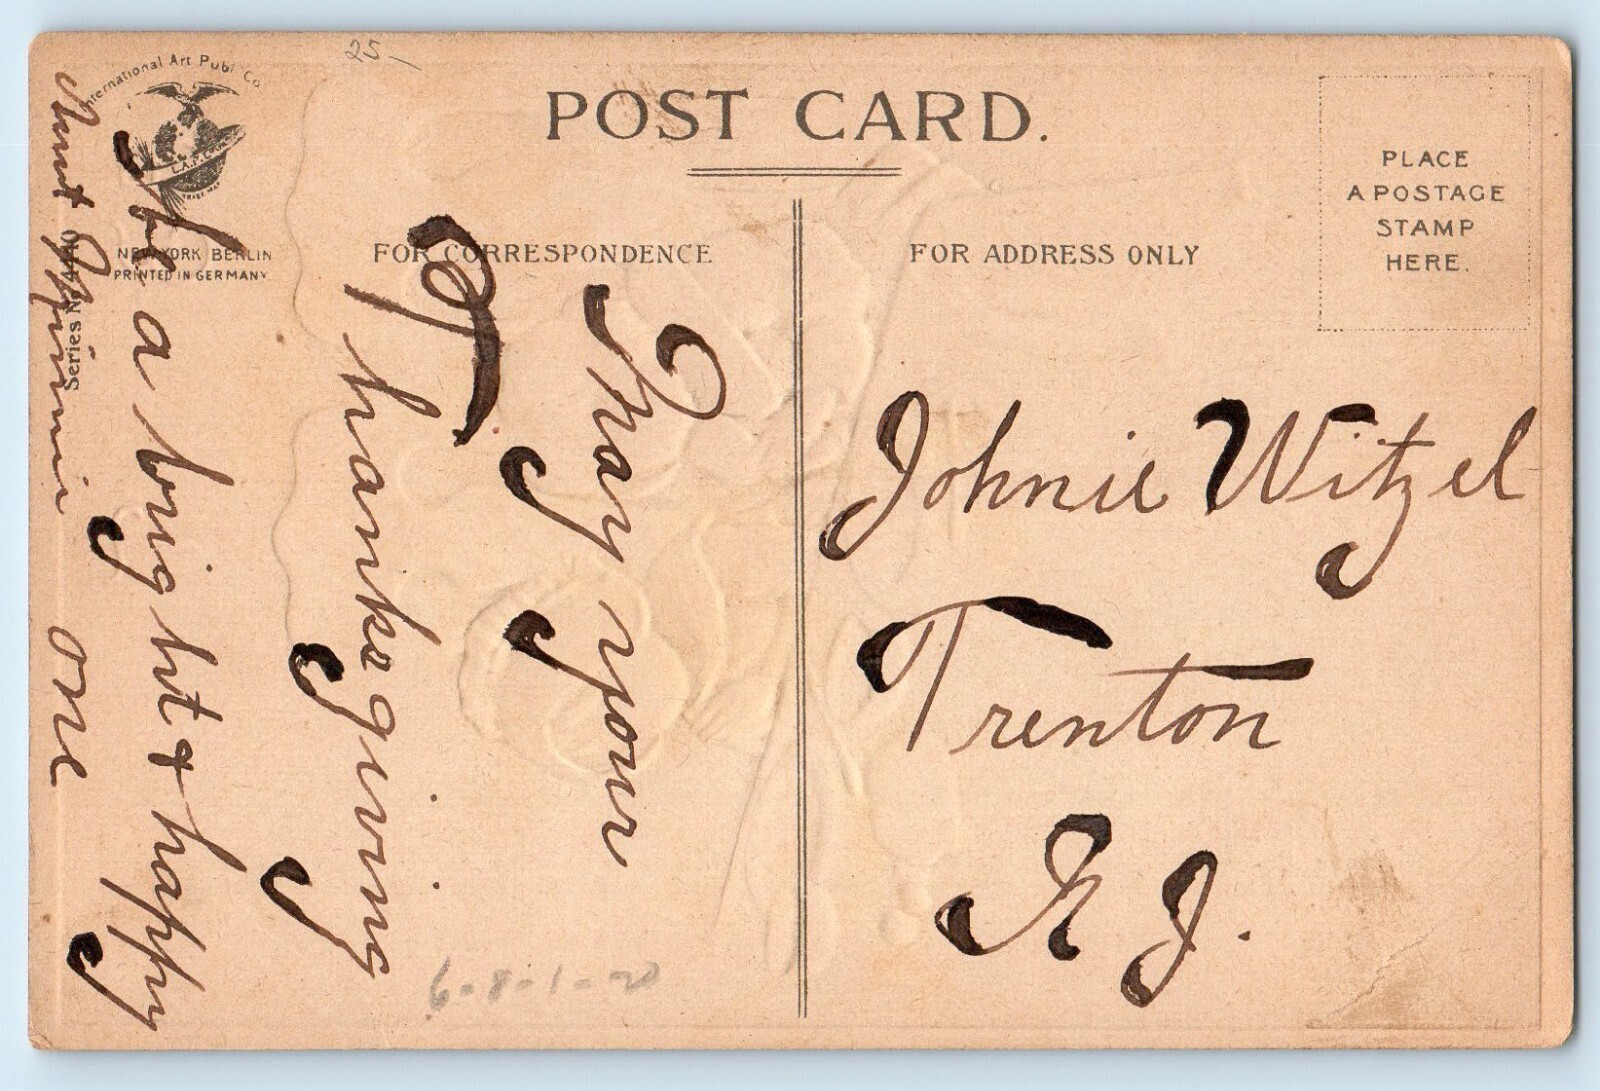 25-
International Art Publ. Co.
POST CARD.
PLACE
A POSTAGE
STAMP
HERE.
NEW YORK BERLIN
PRINTED IN GERMANY.
Series No.
FOR CORRESPONDENCE
FOR ADDRESS ONLY
May your
Thanksgiving
Be a bright & happy
one
Aunt
Johnie Witzel
Trenton
N J.
6-8-1-20